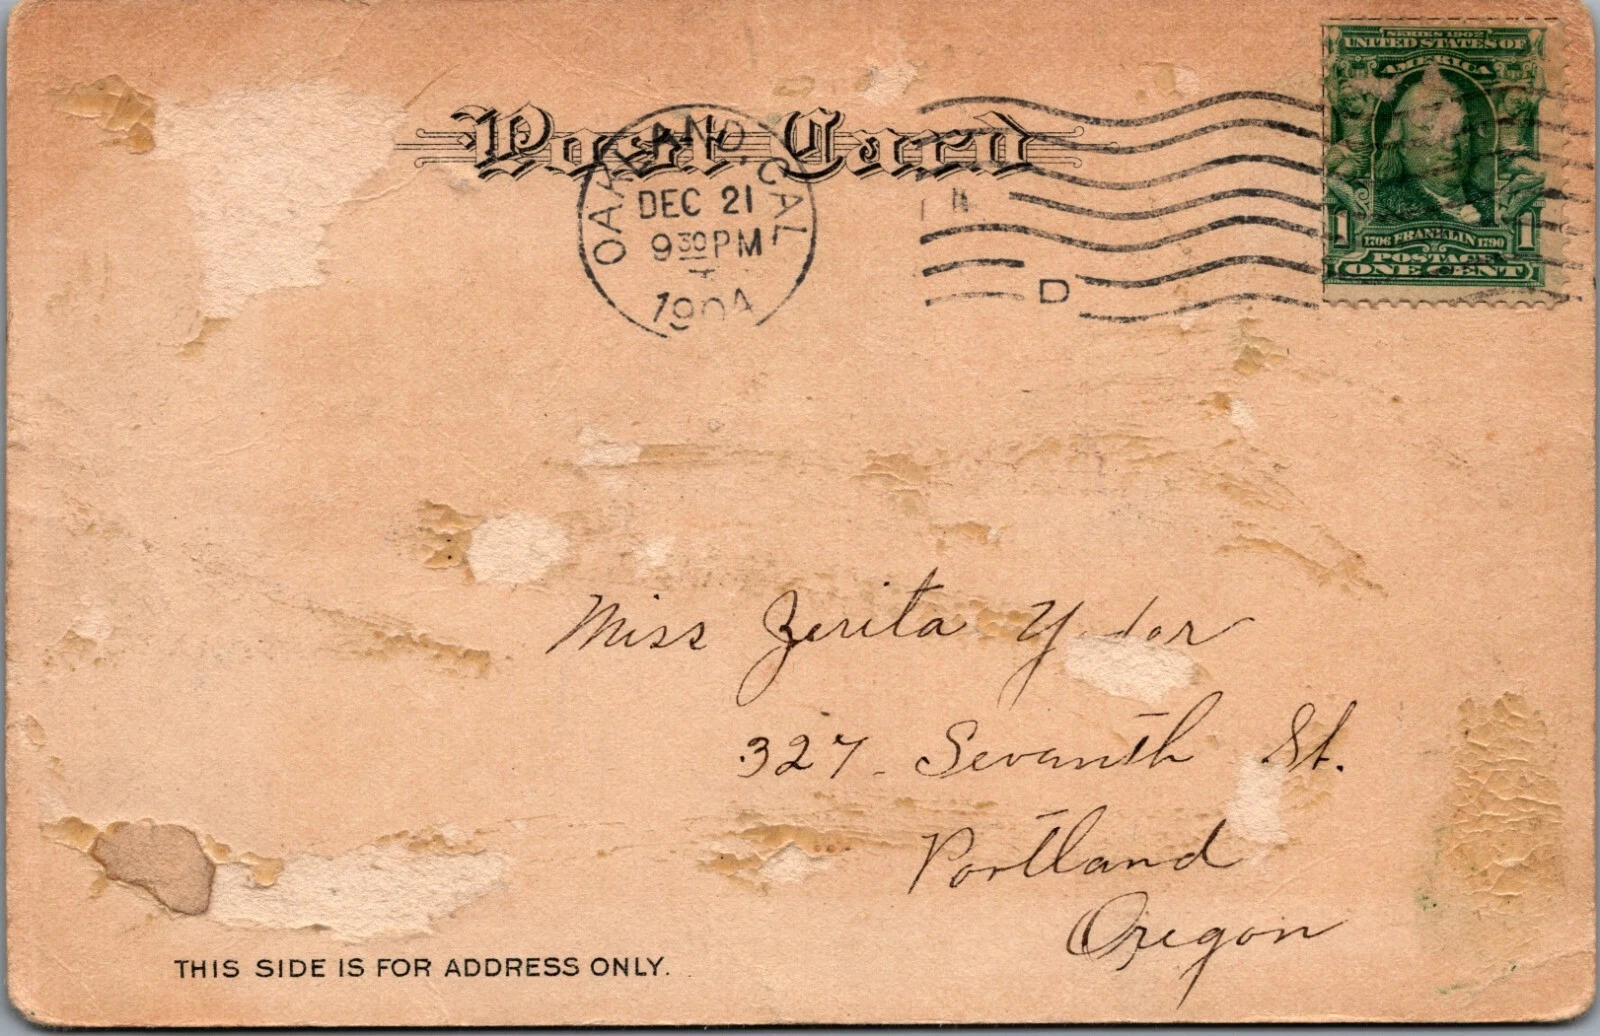 Post Card
OAKLAND. CAL
DEC 21
9 30 PM
1904
D
SERIES 1902
UNITED STATES OF
AMERICA
1 1
1706 FRANKLIN 1790
POSTAGE
ONE CENT
Miss Zerita
327 Seventh St.
Portland
Oregon
THIS SIDE IS FOR ADDRESS ONLY.